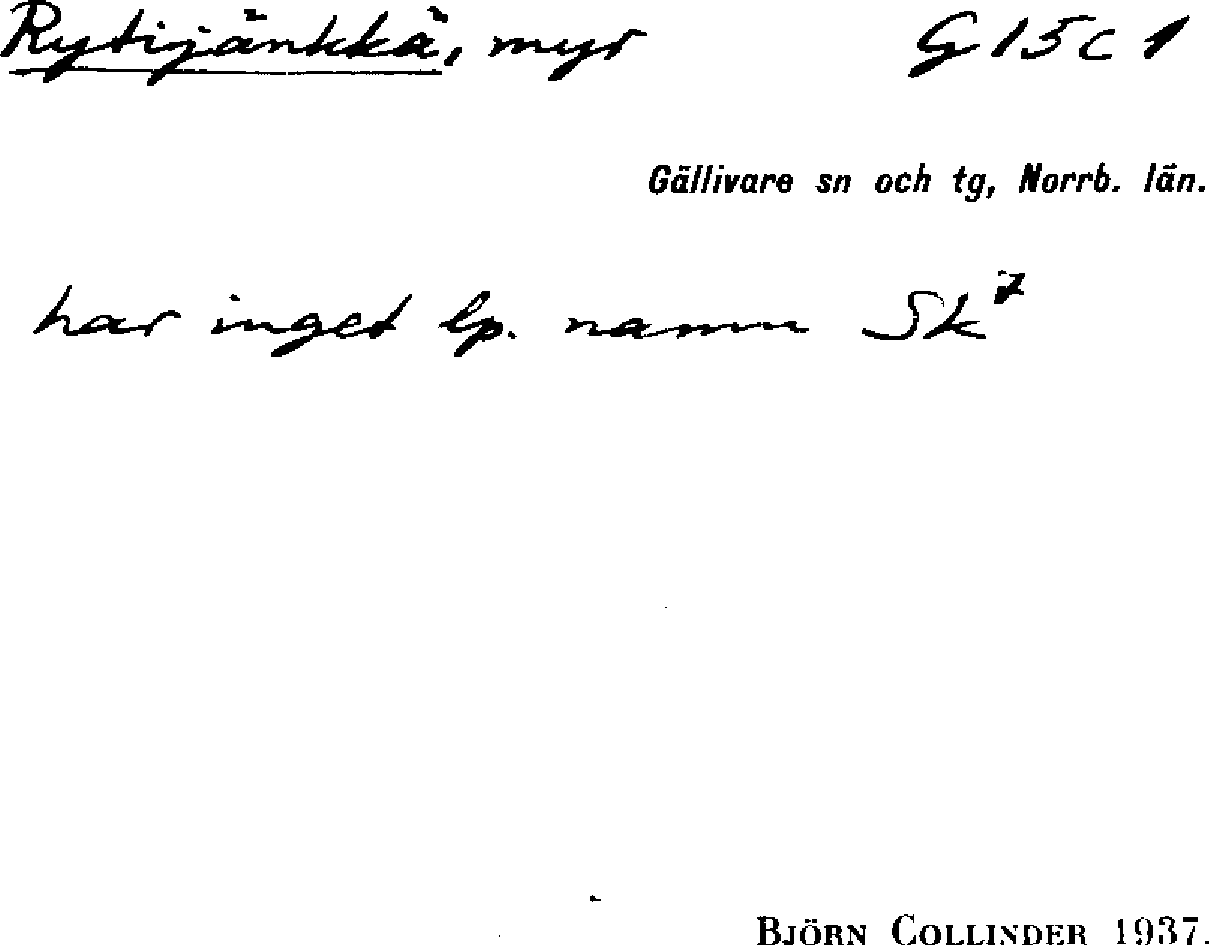 Rytijänkkä, myr G 15 c 1
Gällivare sn och tg, Norrb. län.
har inget lp. namn Sk⁷
BJÖRN COLLINDER 1937.